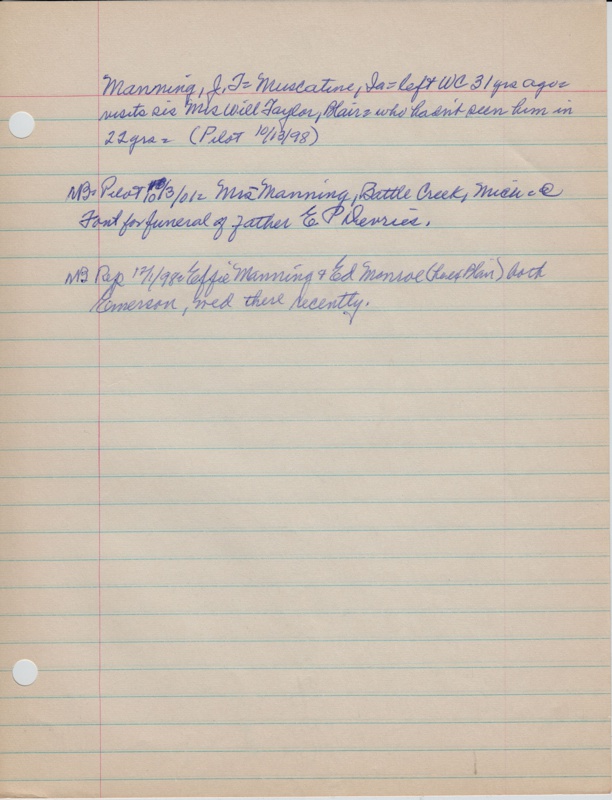 Manning, J. T = Muscatine, Ia = left WC 31 yrs ago =
visits sis Mrs Will Taylor, Blair = who hadn't seen him in
22 yrs = (Pilot 10/13/98)
NB = Pilot 10/3/01 = Mrs Manning, Battle Creek, Mich = @
Font for funeral of father E P Devries.
NB Rep 12/1/98 = Effie Manning & Ed Monroe ( Blair) both
Emerson, wed there recently.